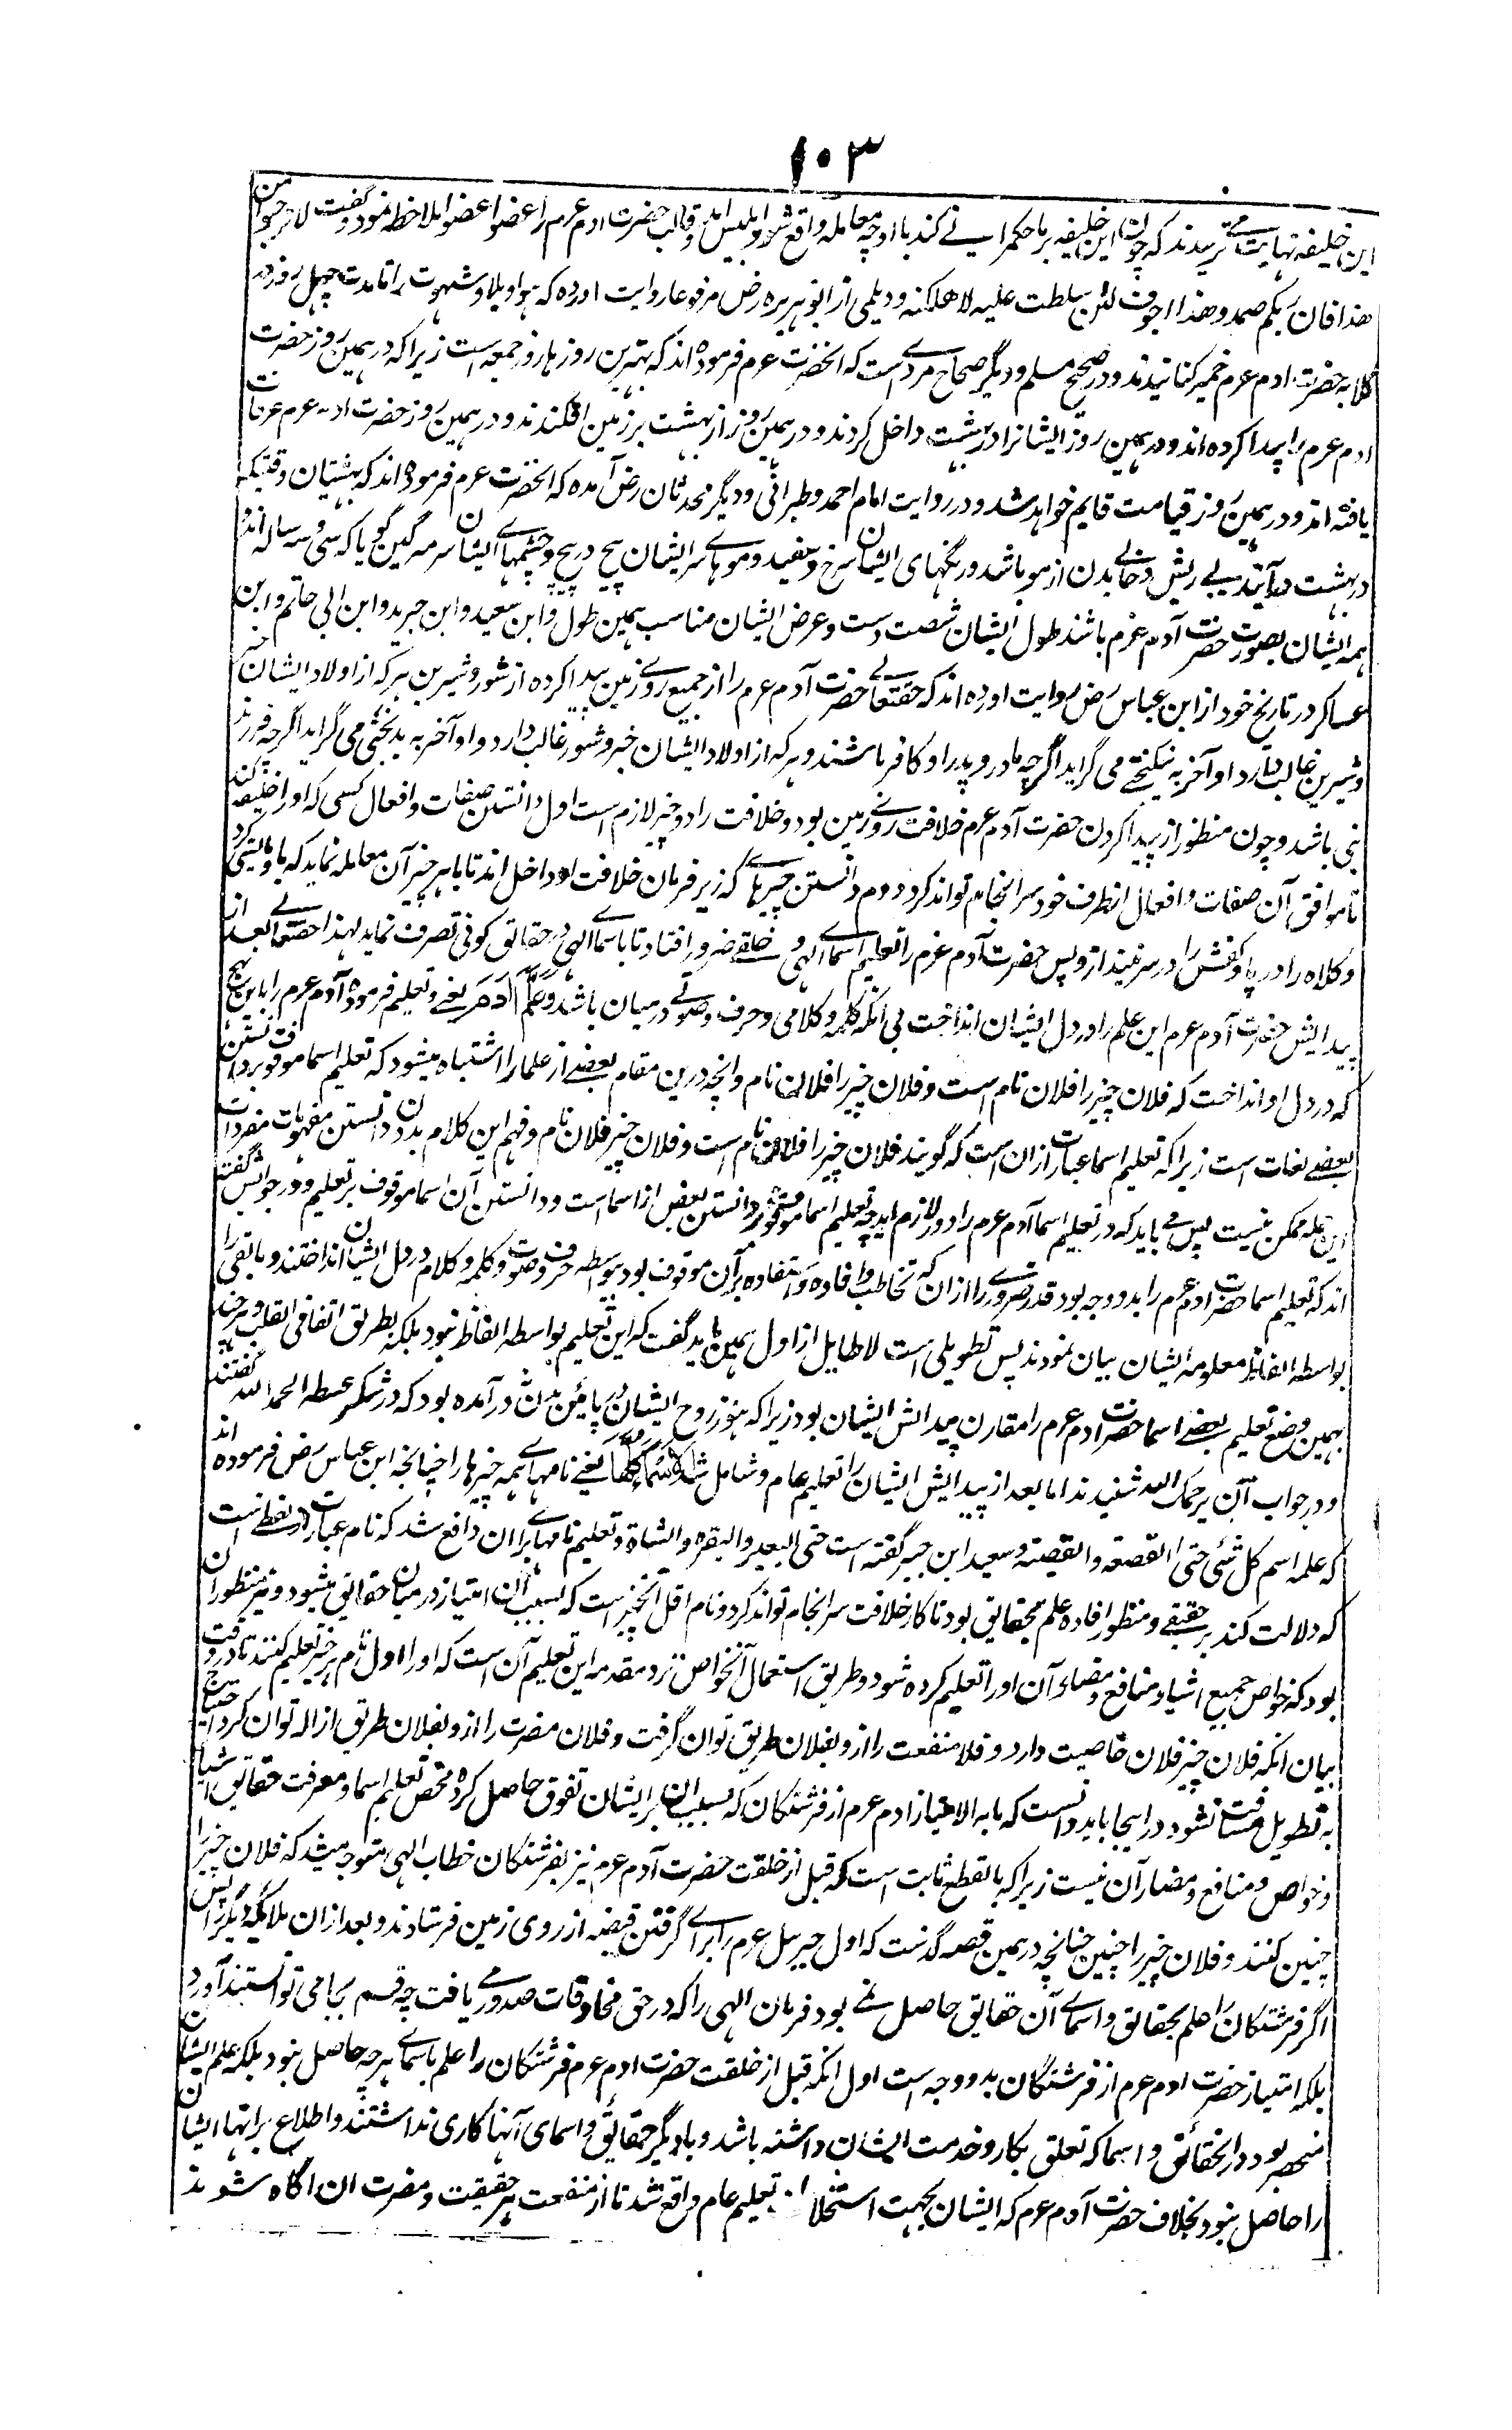 ۱۰۳
این خلیفه نهایت می ترسیدند که چون این خلیفه بر ما حکمرانی کند با او چه معامله واقع شود و ابلیس آمد و قالب حضرت ادم عرم را عضوا عضوا ملاحظه نمود و گفت لا تر هبوا من
هذا فان ربکم صمد و هذا اجوف لئن سلطت علیه لاهلکنه و دیلمی از ابو هریره رض مرفوعا روایت اورده که هوا و بلا و شهوت را تا مدت چهل روز در
گلابه حضرت ادم عرم خمیر کنانیدند و در صحیح مسلم و دیگر صحاح مروی است که انحضرت عرم فرموده اند که بهترین روزها روز جمعه است زیرا که در همین روز حضرت
ادم عرم را پیدا کرده اند و در همین روز ایشانرا در بهشت داخل کردند و در همین روز از بهشت بر زمین افکندند و در همین روز حضرت ادم عرم وفات
یافته اند و در همین روز قیامت قایم خواهد شد و در روایت امام احمد و طبرانی و دیگر محدثان رض آمده که انحضرت عرم فرموده اند که بهشتیان وقتیکه
در بهشت در آیند بے ریش و خالی بدن از مو باشد و رنگهای ایشان سرخ و سفید و موہاے سر ایشان پیچ در پیچ و چشمہاے ایشان سرمه گین گویا که سی و سه ساله اند
همه ایشان بصورت حضرت آدم عرم باشند طول ایشان شصت دست و عرض ایشان مناسب همین طول و ابن سعید و ابن جریر و ابن ابی حاتم و ابن
عساکر در تاریخ خود از ابن عباس رض روایت اورده اند که حقتعالی حضرت آدم عرم را از جمیع روے زمین پیدا کرده از شور و شیرین هر که از اولاد ایشان خبر
و شیرین غالب دارد او آخر به نیکبختی می گراید اگرچه مادر و پدر او کافر باشند و هر که از اولاد ایشان خبر و شور غالب دارد و او آخر به بدبختی می گراید اگرچه فرزند
نبی باشد و چون منظور از پیدا کردن حضرت آدم عرم خلافت روے زمین بود و خلافت را دو چیز لازم است اول دانستن صفات و افعال کسی که او را خلیفه کند
تا موافق آن صفات و افعال از طرف خود سرانجام تواند کرد دوم دانستن چیزہاے که زیر فرمان خلافت او داخل اند تا با هر چیز آن معامله نماید که باو بایستی کرد
و کلاه را در پا و کفش را در سر نیندازد پس حضرت آدم عرم را تعلیم اسماے الهی و خلقے ضرور افتاد تا باسماے الهی در حقائق کونی تصرف نماید لهذا حقتعالے بعد از
پیدایش حضرت آدم عرم این علم را در دل ایشان انداخت بی آنکه کلمه و کلامی و حرف و صوتے در میان باشد و عَلَّمَ اٰدَمَ یعنے و تعلیم فرموده آدم عرم را باین نهج
که در دل او انداخت که فلان چیز را فلان نام است و فلان چیز را فلان نام و انچه درین مقام بعضے از علما را اشتباه میشود که تعلیم اسما موقوف بر دانستن
بعضے لغات است زیرا که تعلیم اسما عبارت ازان است که گویند فلان چیز را فلان نام است و فلان چیز فلان نام و فهم این کلام بدون دانستن مفهومات مفردات
این کله ممکن نیست پس مے باید که در تعلیم اسما آدم عرم را دور لازم اید چه تعلیم اسما موقوف بر دانستن بعض از اسما است و دانستن آن اسما موقوف بر تعلیم و در جوابش گفته
اند که تعلیم اسما حضرت ادم عرم را بدو وجه بود قدر ضرورے را ازان که تخاطب و افاده و استفاده بر آن موقوف بود بیواسطه حرف و صوت و کلمه و کلام در دل ایشان انداختند و باقی را
بواسطه الفاظ معلومه ایشان بیان نمودند پس تطویلی است لاطایل از اول همین باید گفت که این تعلیم بواسطه الفاظ نبود بلکه بطریق اتفاقی القلب هر چند
بهمین وضع تعلیم بعضے اسما حضرت ادم عرم را مقارن پیدائش ایشان بود زیرا که هنوز روح ایشان در پائین بدن در آمده بود که در شکر عطسه الحمد لله گفتند
و در جواب آن یرحمک الله شنیدند اما بعد از پیدایش ایشان را تعلیم عام و شامل شد الاسماء کلها یعنے نامہاے همه چیزها را چنانچه ابن عباس رض فرموده اند
که علمه اسم کل شئی حتی القصعه و القصیعه و سعید ابن جبیر گفته است حتی البعیر و البقره و الشاة و تعلیم نامہاے برا ان واقع شد که نام عبارت از لفظے است
که دلالت کند بر حقیقے و منظور افاده علم بحقایق بود تا کار خلافت سرانجام تواند کرد و نام اقل انچیز است که بسبب آن امتیاز در میان حقایق میشود و نیز منظور ان
بود که خواص جمیع اشیا و منافع و مضار آن او را تعلیم کرده شود و طریق استعمال آنخواص نزد مقدمه این تعلیم آن است که او را اول نام هر چیز تعلیم کنند تا در وقت
بیان انکه فلان چیز فلان خاصیت دارد و فلان منفعت را ازو بفلان طریق توان گرفت و فلان مضرت را ازو بفلان طریق ازاله توان کرد احتیاج
به تطویل مسافت نشود و در اینجا باید دانست که ما به الامتیاز ادم عرم از فرشتگان که بسبب ان بر ایشان تفوق حاصل کرد محض تعلیم اسما و معرفت حقایق اشیا
و خواص و منافع و مضار آن نیست زیرا که بالقطع ثابت است که قبل از خلقت حضرت آدم عرم نیز بفرشتگان خطاب الهی متوجه میشد که فلان چیز را
چنین کنند و فلان چیز را چنین چنانچه در همین قصه گذشت که اول جبریل عرم را براے گرفتن قبضه از روی زمین فرستادند و بعد ازان ملائکه دیگر را پس
اگر فرشتگان را علم بحقایق و اسماے آن حقایق حاصل نمے بود فرمان الهی را که در حق مخلوقات صدور مے یافت چه قسم بجا می توانستند آورد
بلکه امتیاز حضرت ادم عرم از فرشتگان بدو وجه است اول انکه قبل از خلقت حضرت ادم عرم فرشتگان را علم باسماے هر چه حاصل نبود بلکه علم ایشان
منحصر بود در انحقائق و اسما که تعلق بکار و خدمت ایشان داشته باشد و با دیگر حقائق و اسمای آنها کاری نداشتند و اطلاع بر انها ایشان
را حاصل نبود بخلاف حضرت آدم عرم که ایشان بجهت استخلاف تعلیم عام واقع شد تا از منفعت هر حقیقت و مضرت ان آگاه شوند